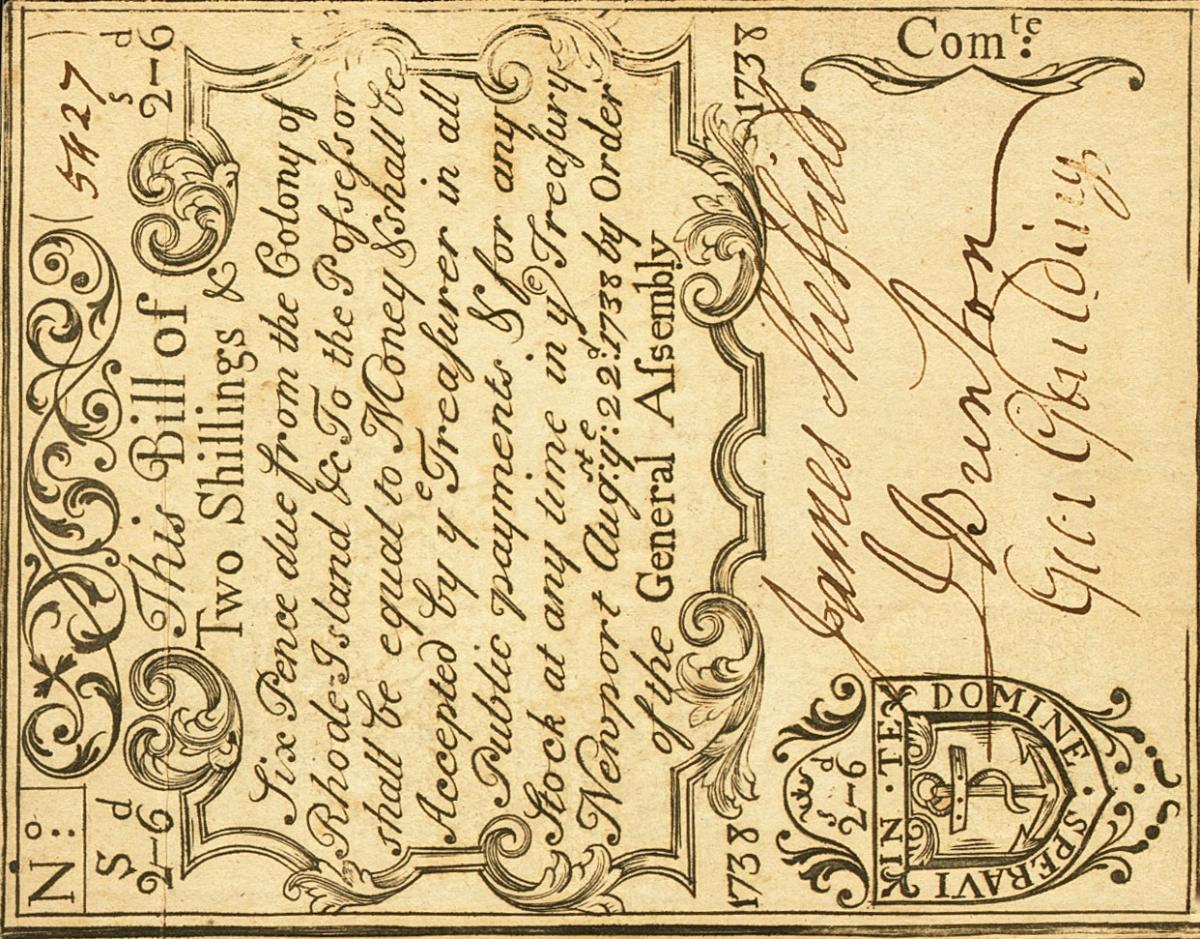 No: (5427
s d
2–6
s d
2–6
This Bill of
Two Shillings &
Six Pence due from the Colony of
Rhode=Island &c To the Poſseſsor
shall be equal to Money & shall be
Accepted by yᵉ Treaſurer in all
Public payments & for any
Stock at any time in yᵉ Treaſury
Newport Augᵘſᵗ:22ᵈ:1738 by Order
of the General Aſsembly
1738 1738
s d
2–6
IN · TE DOMINE · SPERAVI
James Sheffield
J Brinton
Geo Goulding
Comᵗᵉ: